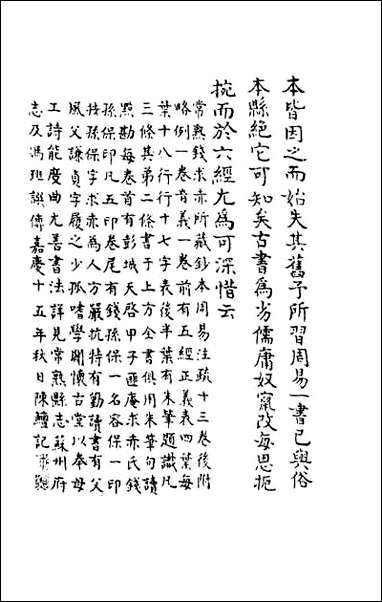 本皆因之而始失其舊予所習周易一書已與俗
本縣絕它可知矣古書爲劣儒庸奴竄改每思扼
捥而於六經尤爲可深惜云
常熟錢求赤所藏鈔本周易注疏十三卷後附
略例一卷音義一卷前有五經正義表四葉每
葉十八行行十七字表後半葉有朱筆題識凡
三條其第二條書于上方全書俱用朱筆句讀
點勘每卷首有彭城天啓甲子匪庵求赤氏錢
孫保印凡五印卷尾有錢孫保一名容保一印
按孫保字求赤爲人方嚴抗特有勤讀書有父
風父謙貞字履之少孤嗜學闢懷古堂以奉母
工詩能度曲尤善書法詳見常熟縣志蘇州府
志及馮班譔傳嘉慶十五年秋日陳鱣記